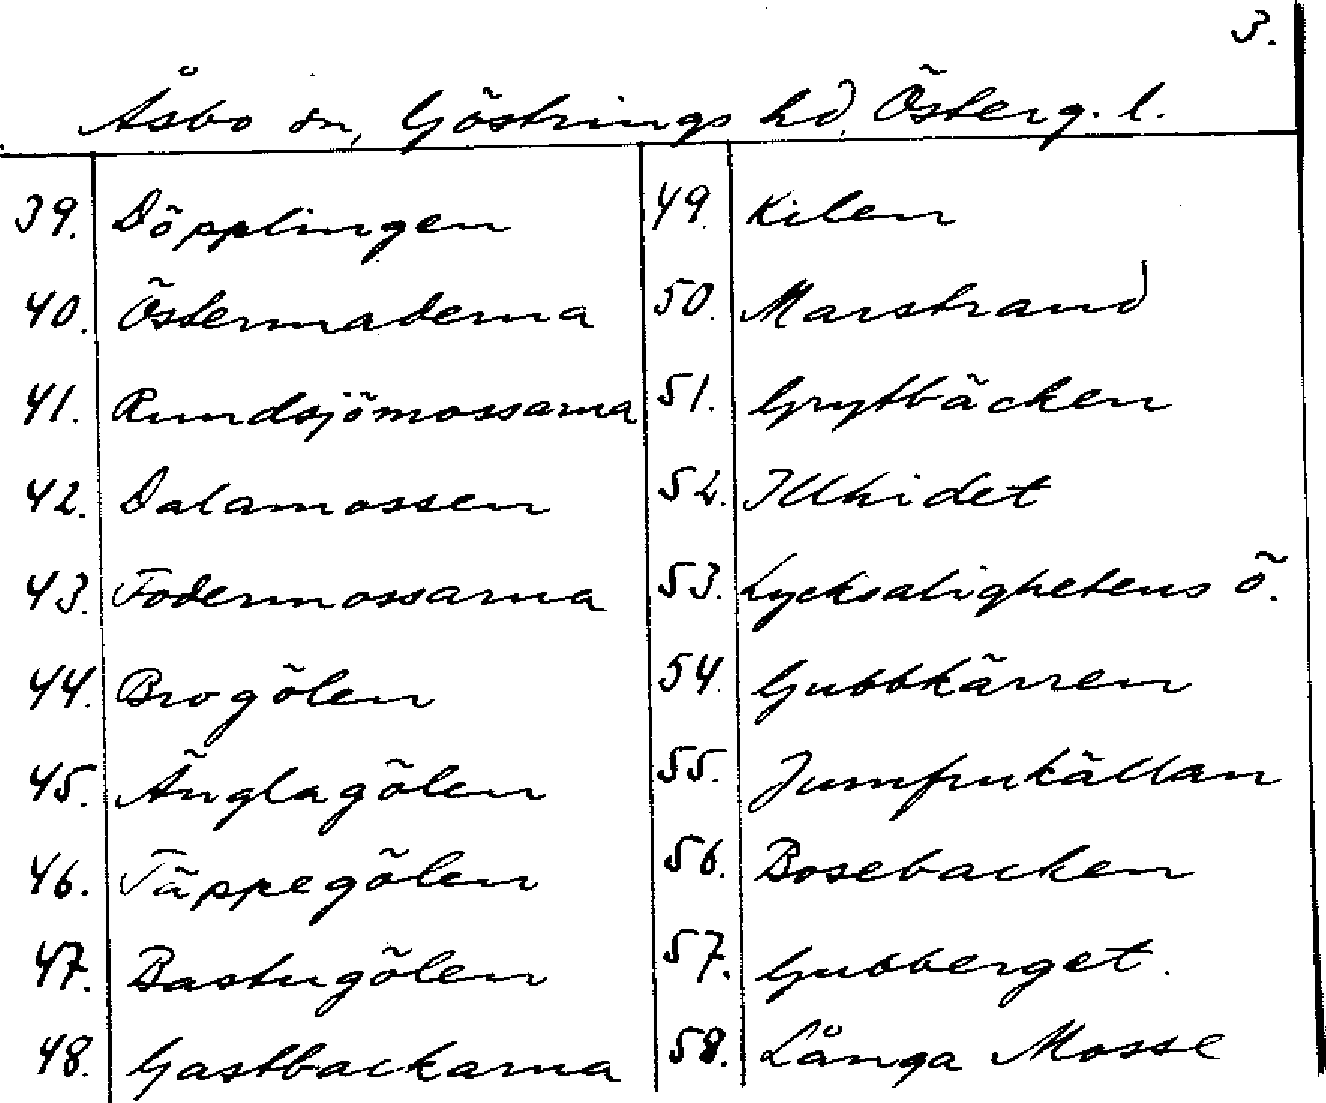 3.
Åsbo sn, Göstrings hd, Österg. l.
39. Döpplingen
40. Östermaderna
41. Rundsjömossarna
42. Dalamossen
43. Fodermossarna
44. Brogölen
45. Änglagölen
46. Täppegölen
47. Bastugölen
48. Gastbackarna
49. Kilen
50. Marstrand
51. Grytbäcken
52. Illhidet
53. Lycksalighetens ö.
54. Gubbkärren
55. Jumfrukällan
56. Bosebacken
57. Gubberget.
58. Långa Mosse